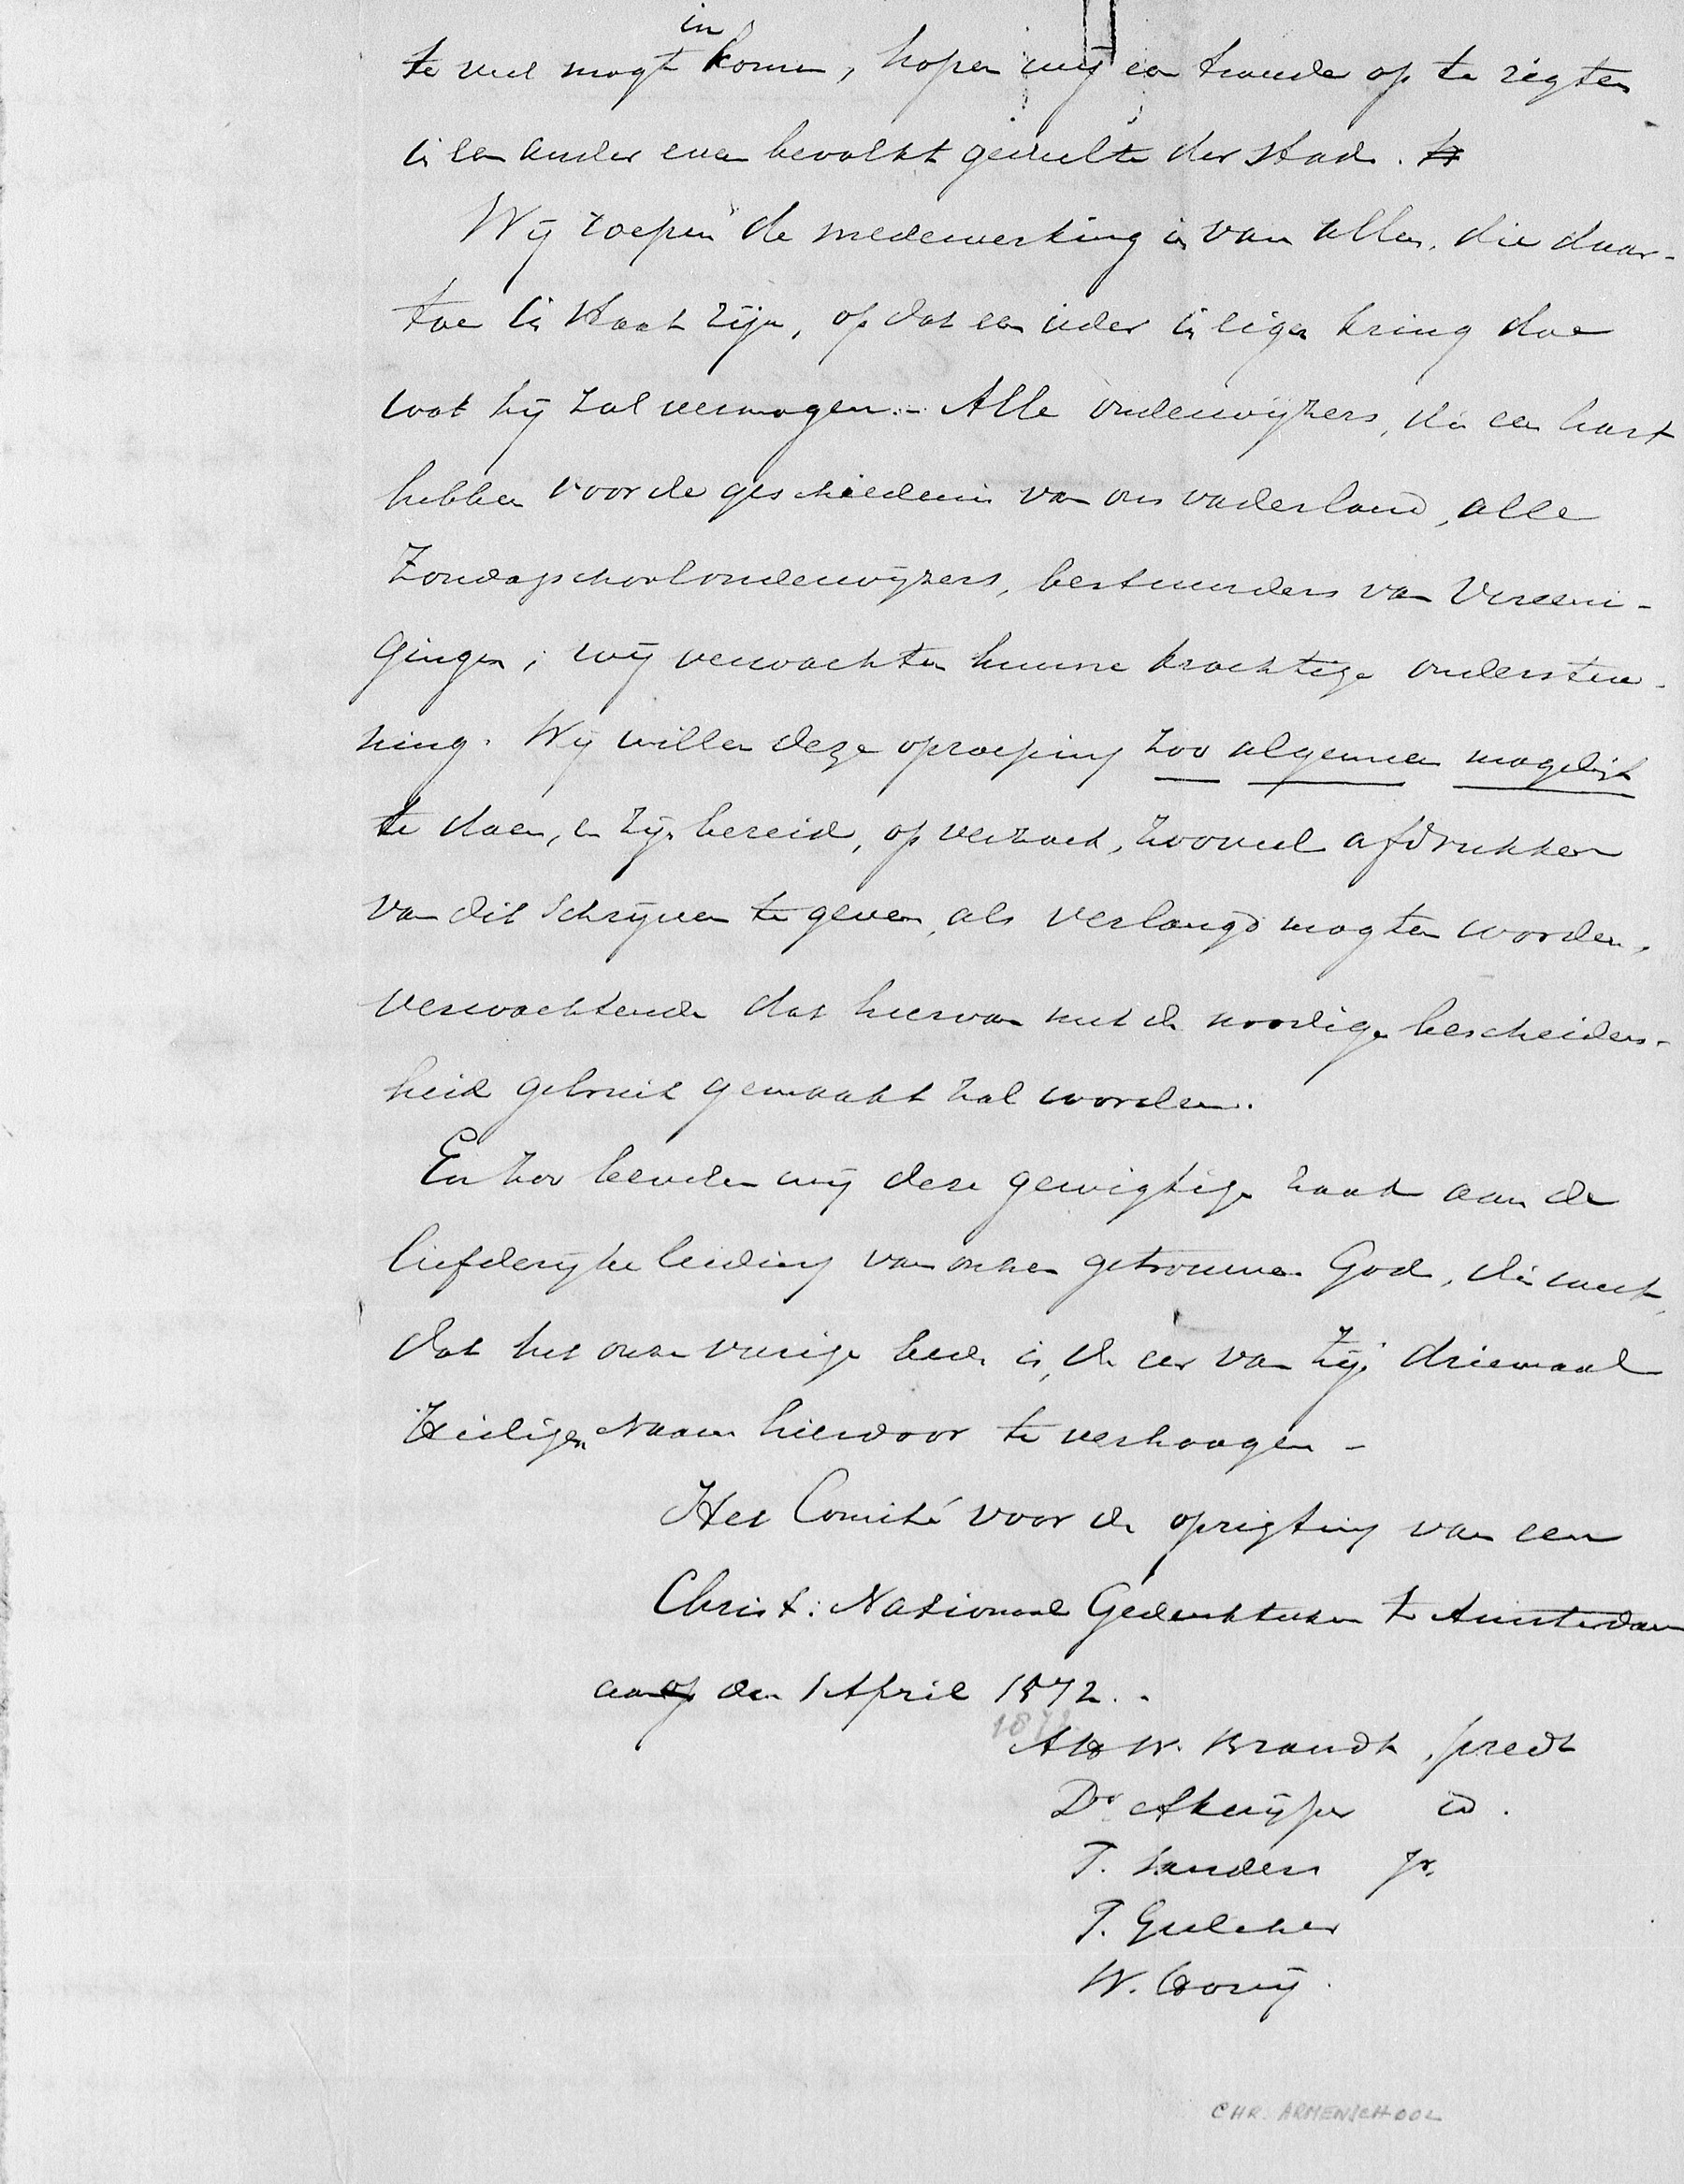 te veel mogt inkomen, hopen wij een tweede op te rigten
in een ander even bevolkt gedeelte der stad.
Wij roepen de medewerking in van allen, die daar-
toe in staat zijn, op dat een ieder in eigen kring doe
wat hij zal vermogen. - Alle onderwijzers, die een hart
hebben voor de geschiedenis van ons vaderland, alle
Zondagschoolonderwijzers, bestuurders van Vereeni-
gingen; wij verwachten hunne krachtige ondersteu-
ning. Wij willen deze oproeping zoo algemeen mogelijk
te doen, en zijn bereid, op verzoek, zooveel afdrukken
van dit schrijven te geven, als verlangd mogten worden,
verwachtende dat hiervan met de noodige bescheiden-
heid gebruik gemaakt zal worden.
En zoo bevelen wij deze gewigtige zaak aan de
liefderijke leiding van onzen getrouwen God, die weet,
dat het onze vurige bede is, de eer van Zijn driemaal
Heiligen Naam hierdoor te verhoogen -
Het Comité voor de oprigting van een
Christ: Nationaal Gedenkteeken te Amsterdam
aan op den 1 April 1572. -
1872
W. Brandt, predt
Dr. A Kuijper id.
T. Sanders Jr.
T. Gulcher
W. Hovij.
CHR. ARMENSCHOOL